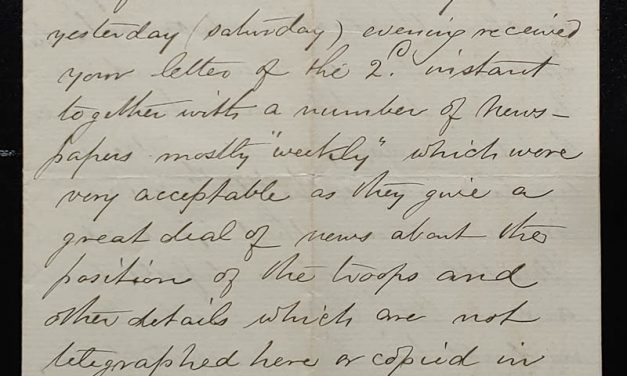 yesterday (saturday) evening received
your letter of the 2d. instant
together with a number of News-
papers mostly "weekly" which were
very acceptable as they give a
great deal of news about the
position of the troops and
other details which are not
telegraphed here or copied in